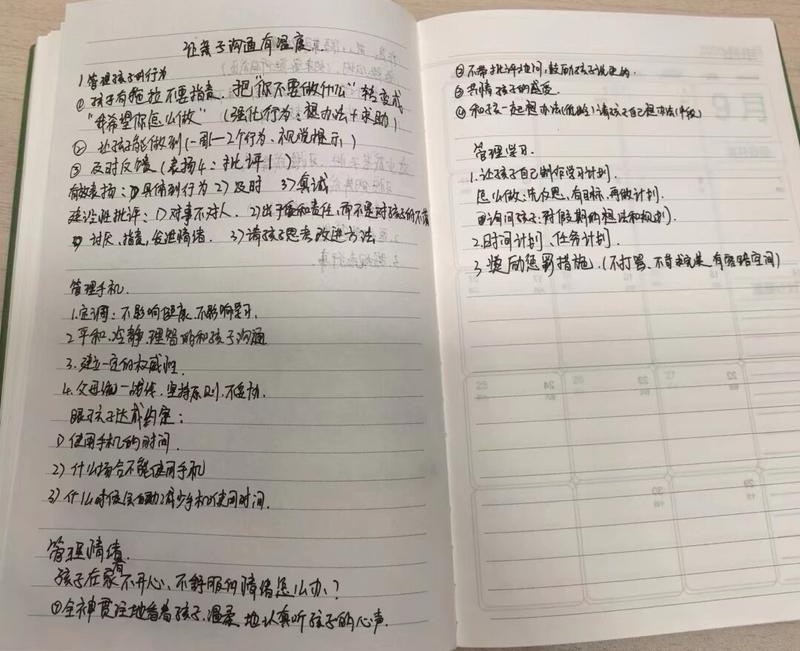 让亲子沟通有温度
1.管理孩子的行为
① 孩子有拖拉不要指责,把“你不要做什么”转变成
“我希望你怎么做”(强化行为:想办法+求助)
② 让孩子能做到(一周一2个行为、不见说提示)
③ 及时反馈(表扬4:批评1)
有效表扬:1)具体到行为 2)及时 3)真诚
建设性批评:1)对事不对人. 2)出于爱和责任,而不是对孩子的不满
讨厌、指责,发泄情绪. 3)请孩子思考改进方法
管理手机.
1.定调:不影响健康、不影响学习.
2.平和、冷静、理智的和孩子沟通
3.建立一定的权威性.
4.父母统一战线、坚持原则、不妥协.
跟孩子达成约定:
1)使用手机的时间.
2)什么场合不能使用手机
3)什么时候该主动减少手机使用时间.
管理情绪.
孩子在家有不开心、不舒服的情绪怎么办?
①全神贯注地看着孩子、温柔地认真听孩子的心声.
②不带批评追问,鼓励孩子说更多的.
③共情孩子的感受.
④和孩子一起想办法(低龄)请孩子自己想办法(中段)
管理学习.
1.让孩子自己制作学习计划.
怎么做:先反思,有目标,再做计划.
询问孩子:对假期的想法和规划.
2.时间计划、任务计划.
3.奖励惩罚措施.(不打骂、不苛求完美、有弹性空间)